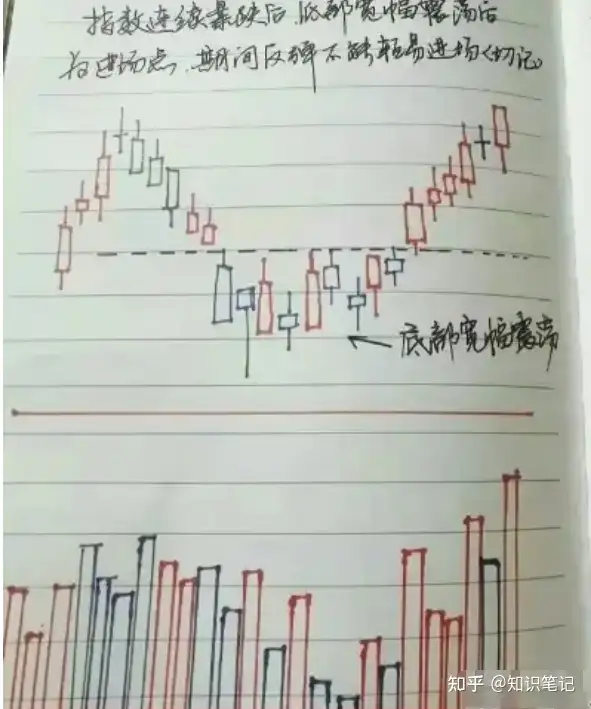 指数连续暴跌后底部宽幅震荡后
为进场点.期间反弹不能轻易进场<切记>
底部宽幅震荡
知乎 @知识笔记